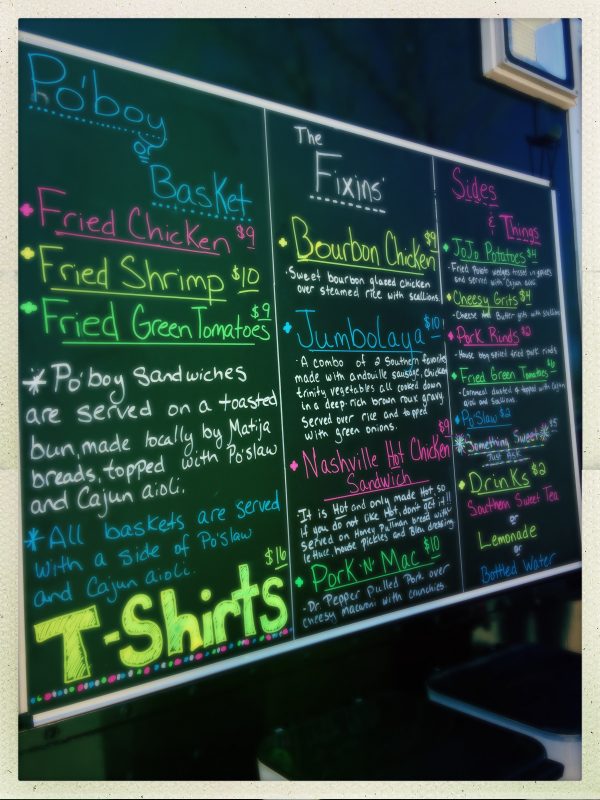 Po'boy
or
Basket
Fried Chicken $9
Fried Shrimp $10
Fried Green Tomatoes $9
*Po'boy Sandwiches
are served on a toasted
bun, made locally by Matija
breads, topped with Po'slaw
and Cajun aioli.
*All baskets are served
with a side of Po'slaw
and Cajun aioli.
$16
T-Shirts
The
Fixins'
Bourbon Chicken $9
-Sweet bourbon glazed chicken
over steamed rice with scallions.
Jumbolaya $10
-A combo of 2 Southern favorites
made with andouille sausage, chicken
trinity vegetables all cooked down
in a deep-rich brown roux gravy.
Served over rice and topped
with green onions.
$9
Nashville Hot Chicken
Sandwich
-It is Hot and only made Hot, so
if you do not like Hot, don't get it!!
Served on Honey Pullman bread with
lettuce, house pickles and Bleu dressing.
Pork N' Mac $10
-Dr. Pepper pulled Pork over
cheesy macaroni with crunchies.
Sides
& Things
JoJo Potatoes $4
-Fried Potato wedges tossed in spices
and served with Cajun aioli
Cheesy Grits $4
-Cheese and Butter grits with scallions
Pork Rinds $2
-House bbq spiced fried pork rinds
Fried Green Tomatoes $6
-Cornmeal dusted & topped with Cajun
aioli and scallions
Po'Slaw $2
*Something Sweet* $5
Just Ask
Drinks $2
Southern Sweet Tea
or
Lemonade
or
Bottled Water